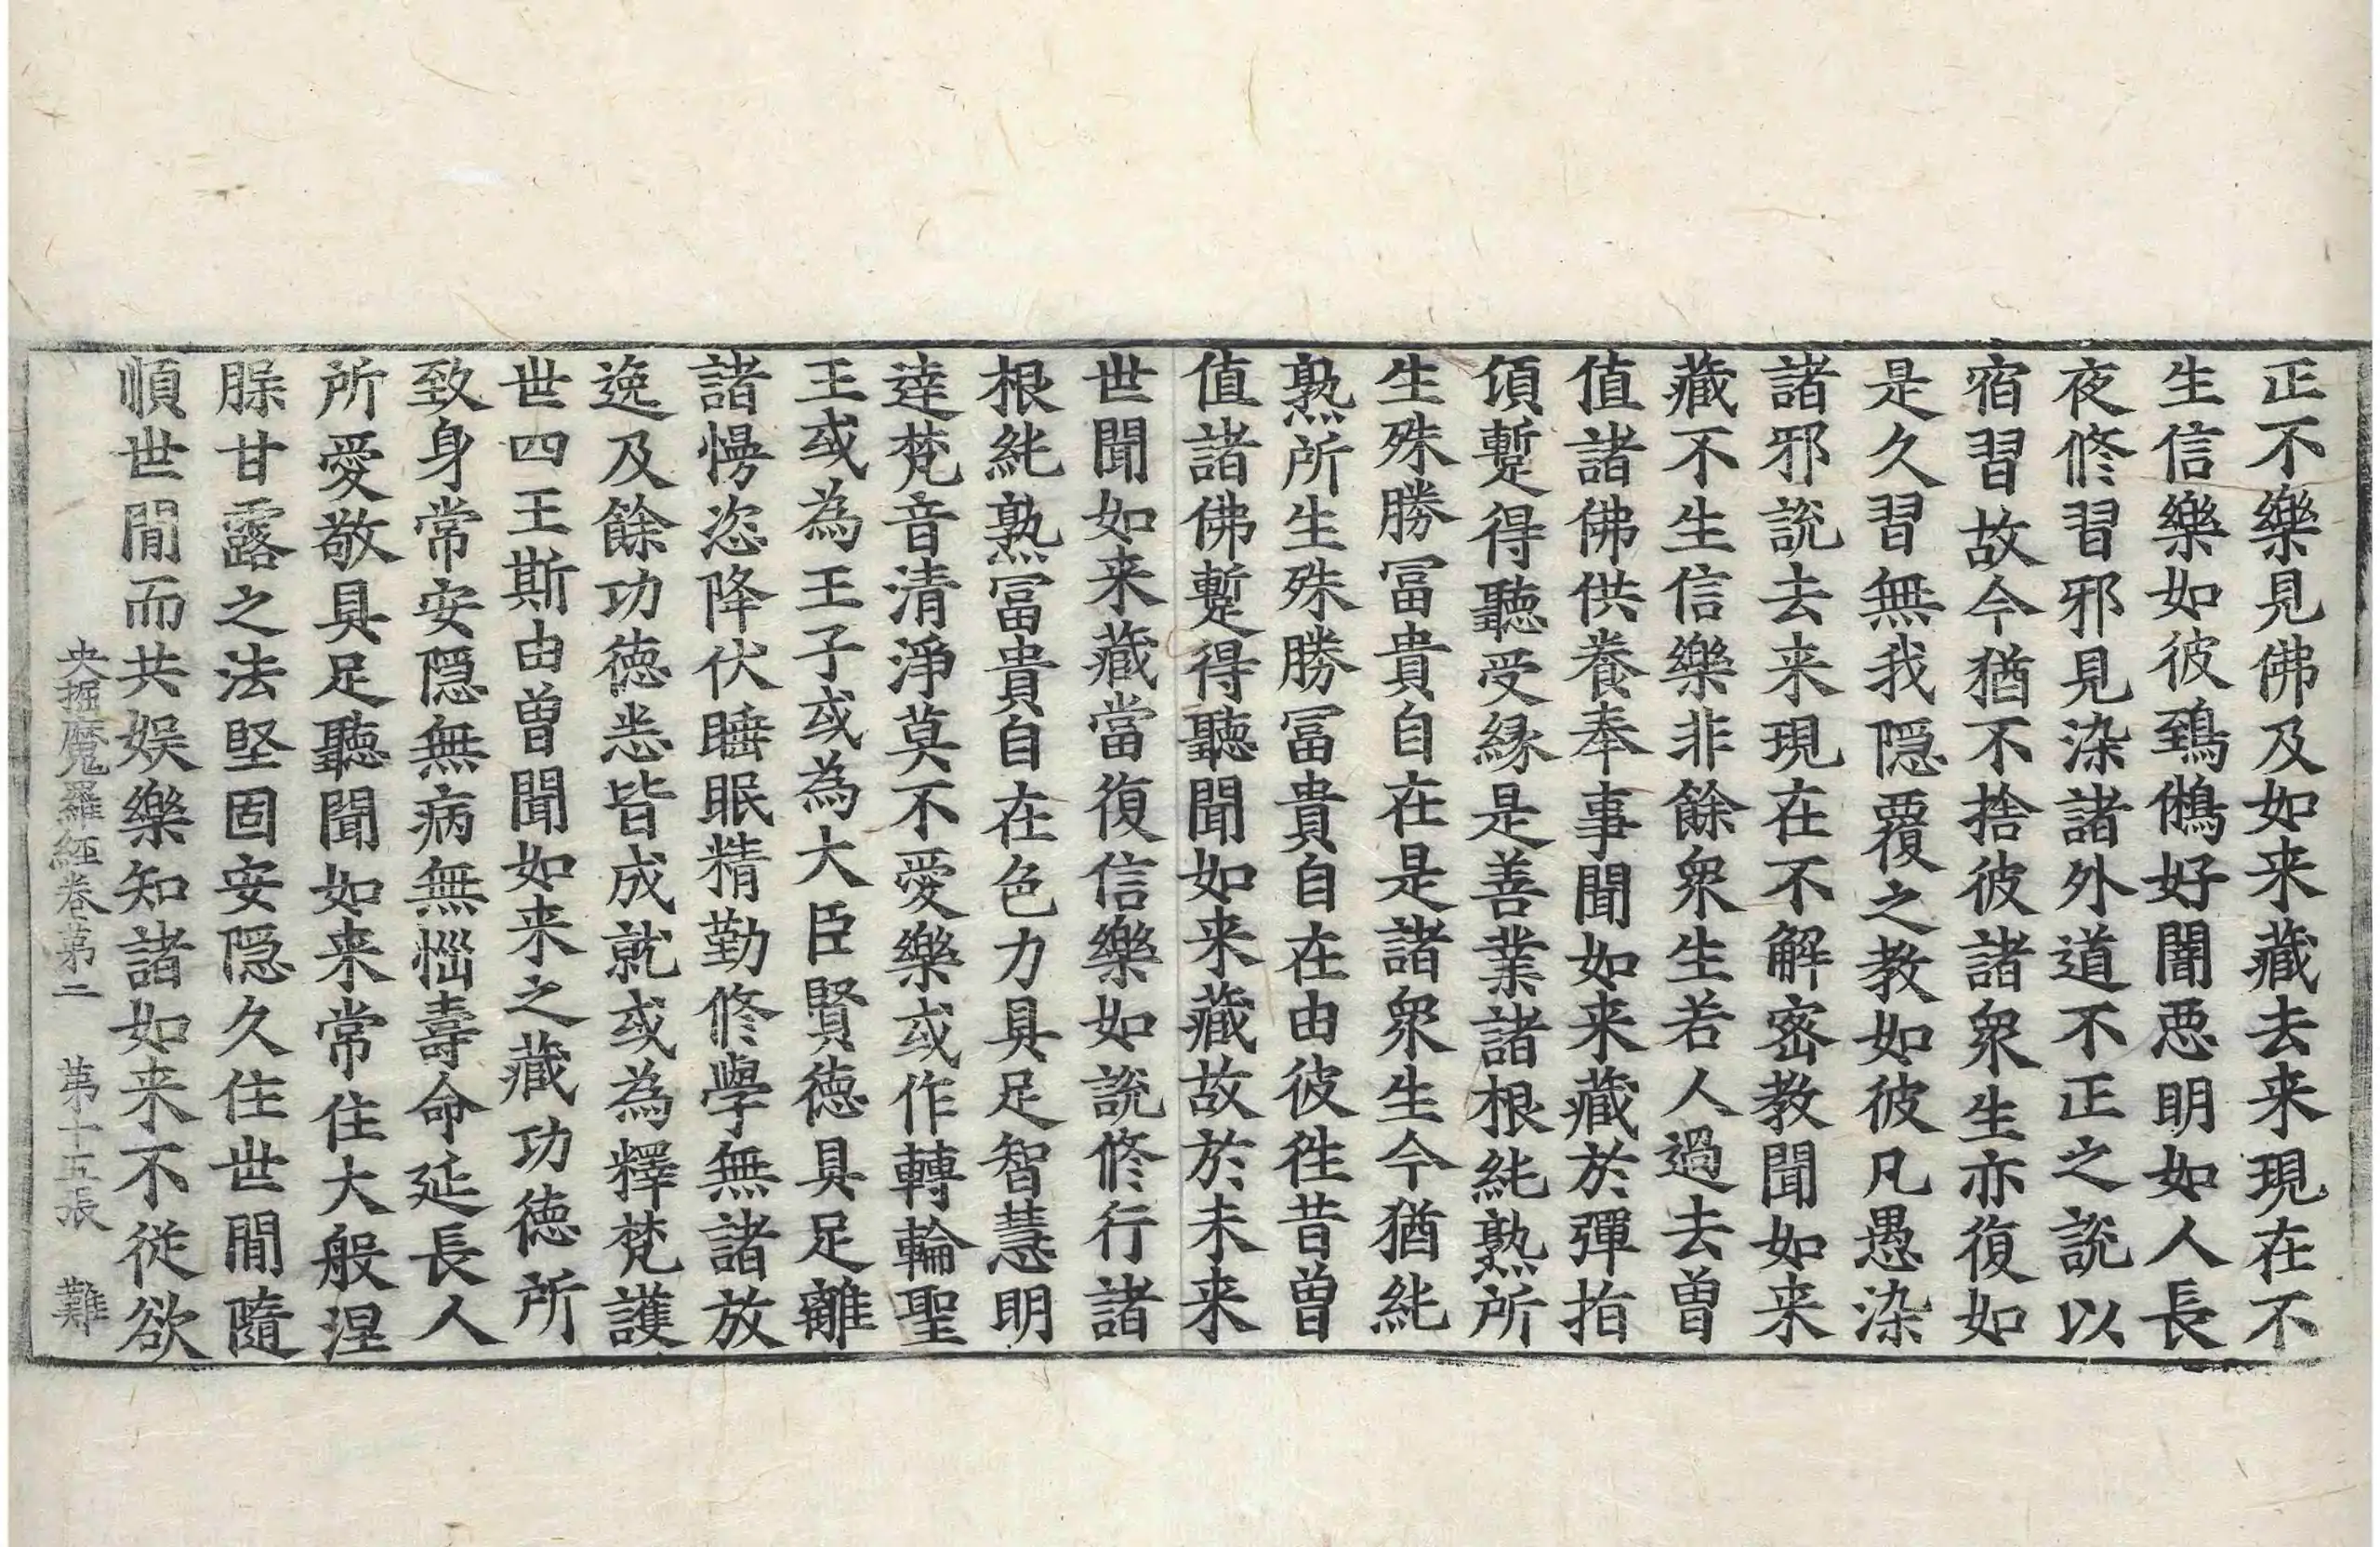 正不樂見佛及如来藏去来現在不
生信樂如彼鵄鵂好闇惡明如人長
夜修習邪見染諸外道不正之說以
宿習故今猶不捨彼諸衆生亦復如
是久習無我隱覆之教如彼凡愚染
諸邪說去来現在不解密教聞如来
藏不生信樂非餘衆生若人過去曾
值諸佛供養奉事聞如来藏於彈指
頃蹔得聽受縁是善業諸根純熟所
生殊勝冨貴自在是諸衆生今猶純
熟所生殊勝冨貴自在由彼徃昔曾
值諸佛蹔得聽聞如来藏故於未来
世聞如来藏當復信樂如說修行諸
根純熟冨貴自在色力具足智慧明
達梵音清淨莫不愛樂或作轉輪聖
王或為王子或為大臣賢徳具足離
諸慢恣降伏睡眠精勤修學無諸放
逸及餘功徳悉皆成就或為釋梵護
世四王斯由曾聞如来之藏功徳所
致身常安隱無病無惱壽命延長人
所愛敬具足聽聞如来常住大般涅
𦙶甘露之法堅固安隱久住世間隨
順世間而共娱樂知諸如来不從欲
央掘魔羅經卷第二 第十五張 難